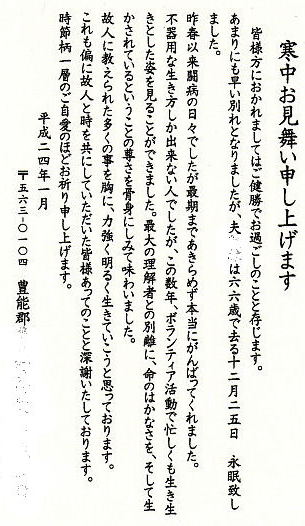 寒中お見舞い申し上げます
皆様方におかれましてはご健勝でお過ごしのことと存じます。
あまりにも早い別れとなりましたが、夫 は六六歳で去る十二月二五日 永眠致し
ました。
昨春以来闘病の日々でしたが最期まであきらめず本当にがんばってくれました。
不器用な生き方しか出来ない人でしたが、この数年、ボランティア活動で忙しくも生き生
きとした姿を見ることができました。最大の理解者との別離に、命のはかなさを、そして生
かされているということの尊さを骨身にしみて味わいました。
故人に教えられた多くの事を胸に、力強く明るく生きていこうと思っております。
これも偏に故人と時を共にしていただいた皆様あってのことと深謝いたしております。
時節柄一層のご自愛のほどお祈り申し上げます。
平成二四年一月
〒五六三-〇一〇四 豊能郡